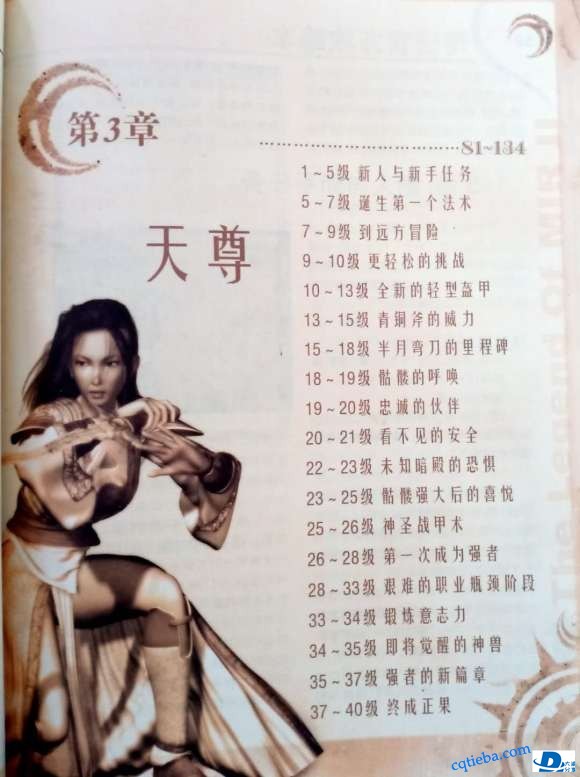 第3章
天尊
81~134
1~5级 新人与新手任务
5~7级 诞生第一个法术
7~9级 到远方冒险
9~10级 更轻松的挑战
10~13级 全新的轻型盔甲
13~15级 青铜斧的威力
15~18级 半月弯刀的里程碑
18~19级 骷髅的呼唤
19~20级 忠诚的伙伴
20~21级 看不见的安全
22~23级 未知暗殿的恐惧
23~25级 骷髅强大后的喜悦
25~26级 神圣战甲术
26~28级 第一次成为强者
28~33级 艰难的职业瓶颈阶段
33~34级 锻炼意志力
34~35级 即将觉醒的神兽
35~37级 强者的新篇章
37~40级 终成正果
The Legend Of MIR II
cqtieba.com